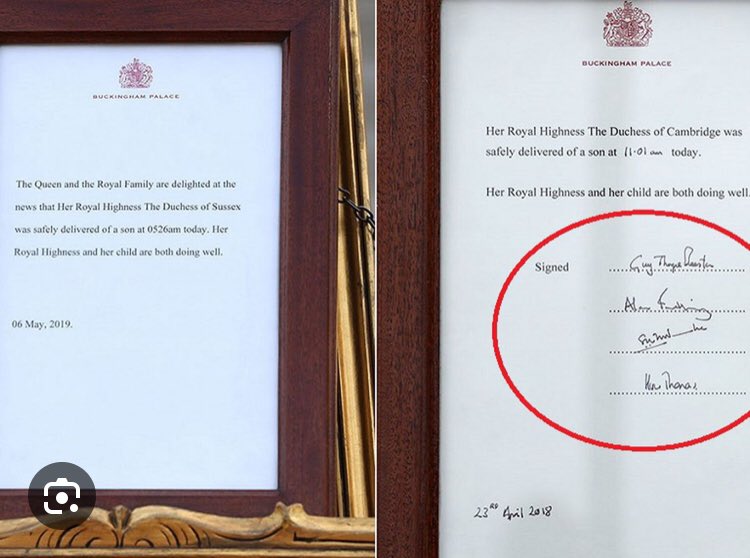 BUCKINGHAM PALACE
The Queen and the Royal Family are delighted at the
news that Her Royal Highness The Duchess of Sussex
was safely delivered of a son at 0526am today. Her
Royal Highness and her child are both doing well.
06 May, 2019.
BUCKINGHAM PALACE
Her Royal Highness The Duchess of Cambridge was
safely delivered of a son at 11.01 am today.
Her Royal Highness and her child are both doing well.
Signed
Guy Thorpe Beeston
Alan
23RD April 2018